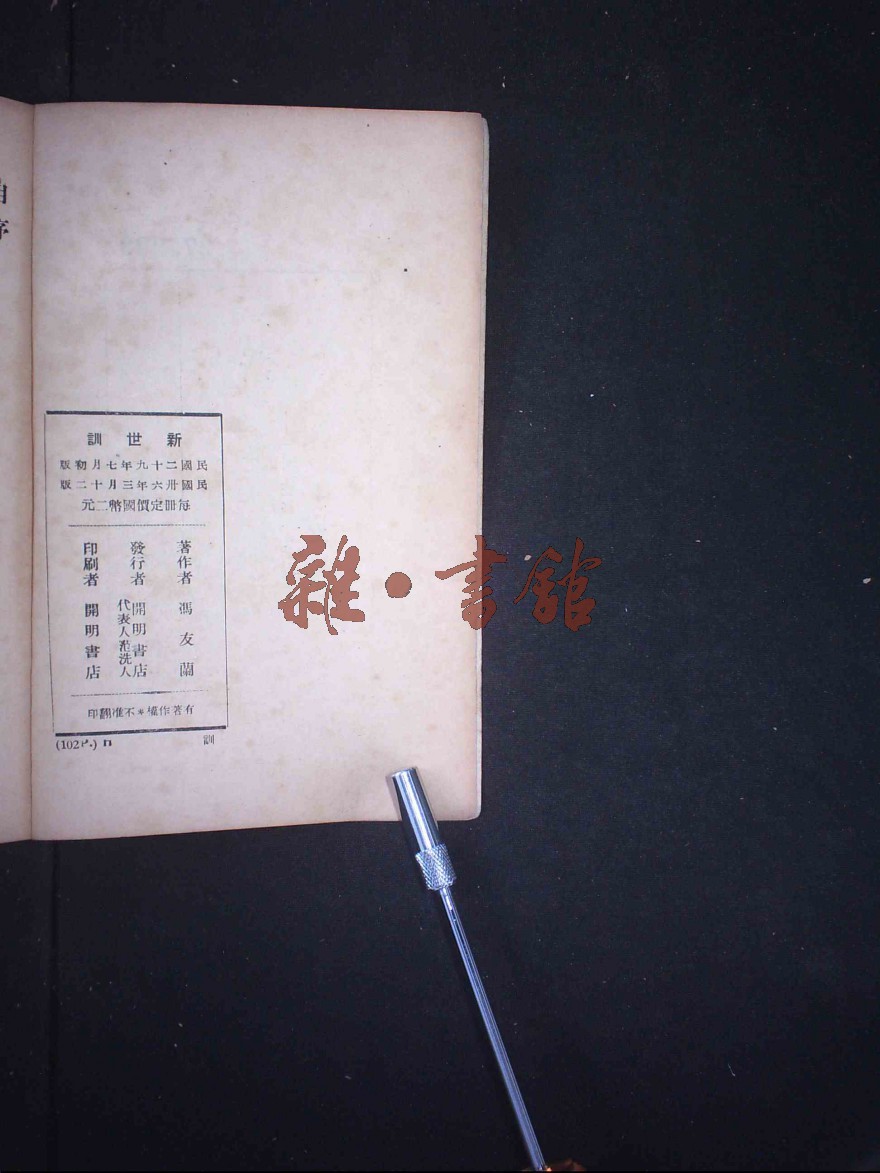 自序
新世訓
民國二十九年七月初版
民國卅六年三月十二版
每冊定價國幣二元
著作者 馮友蘭
發行者 開明書店
代表人范洗人
印刷者 開明書店
有著作權＊不准翻印
訓
雜·書館